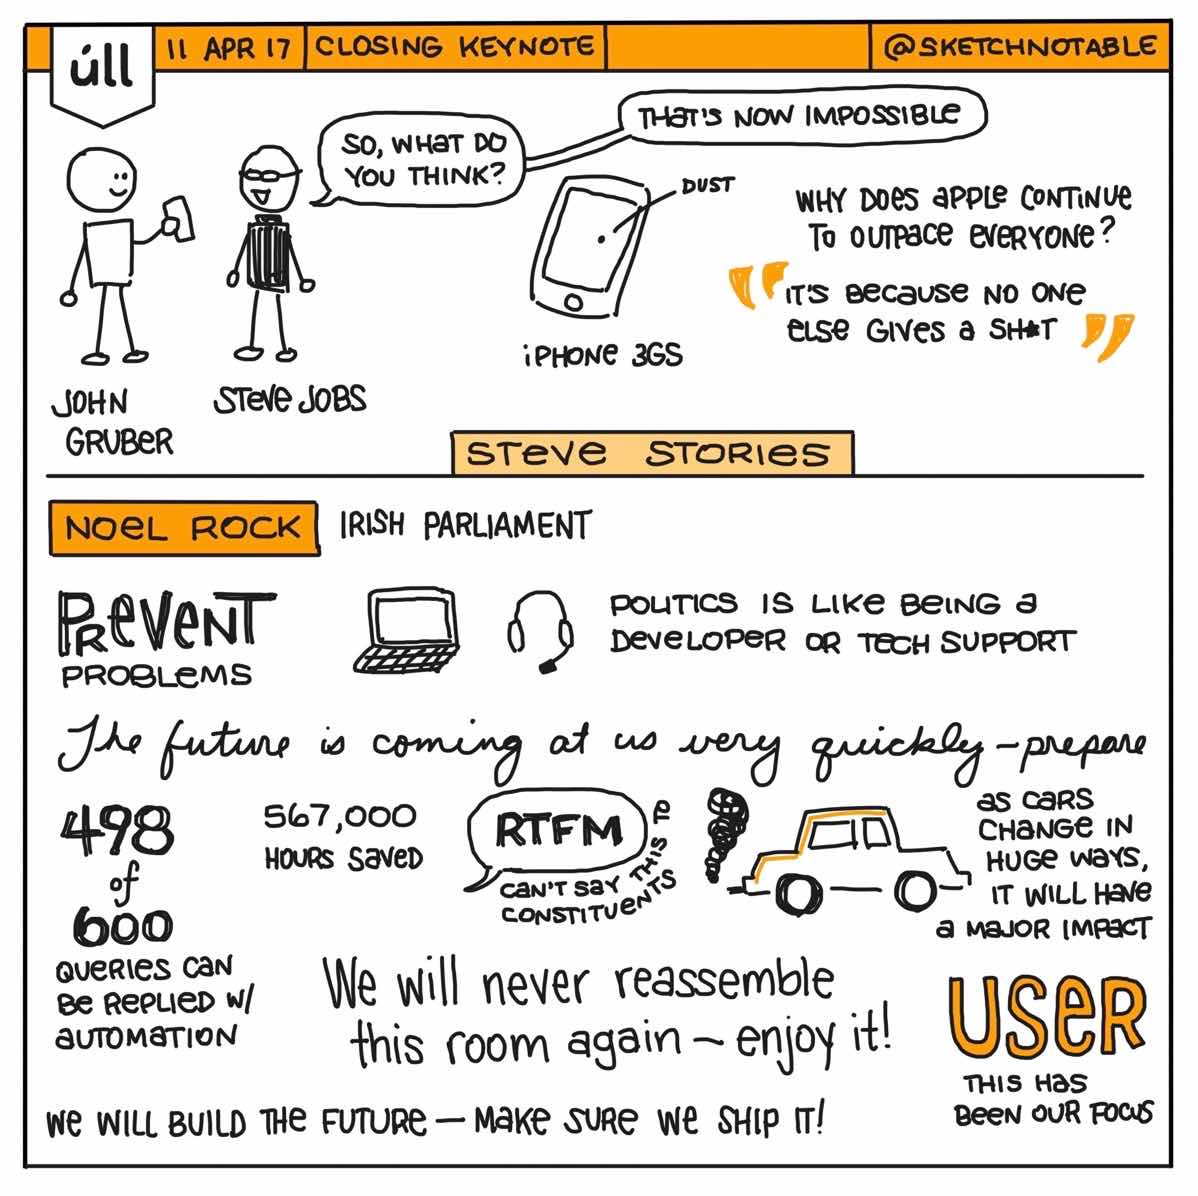 úll
11 APR 17
CLOSING KEYNOTE
@SKETCHNOTABLE
THAT'S NOW IMPOSSIBLE
SO, WHAT DO
YOU THINK?
DUST
iPHONE 3GS
JOHN
GRUBER
STEVE JOBS
WHY DOES APPLE CONTINUE
TO OUTPACE EVERYONE?
"IT'S BECAUSE NO ONE
ELSE GIVES A SH*T"
STEVE STORIES
NOEL ROCK
IRISH PARLIAMENT
PREVENT
PROBLEMS
POLITICS IS LIKE BEING A
DEVELOPER OR TECH SUPPORT
The future is coming at us very quickly – prepare
498
of
600
QUERIES CAN
BE REPLIED W/
AUTOMATION
567,000
HOURS SAVED
RTFM
CAN'T SAY THIS TO
CONSTITUENTS
AS CARS
CHANGE IN
HUGE WAYS,
IT WILL HAVE
A MAJOR IMPACT
We will never reassemble
this room again ~ enjoy it!
USER
THIS HAS
BEEN OUR FOCUS
WE WILL BUILD THE FUTURE – MAKE SURE WE SHIP IT!